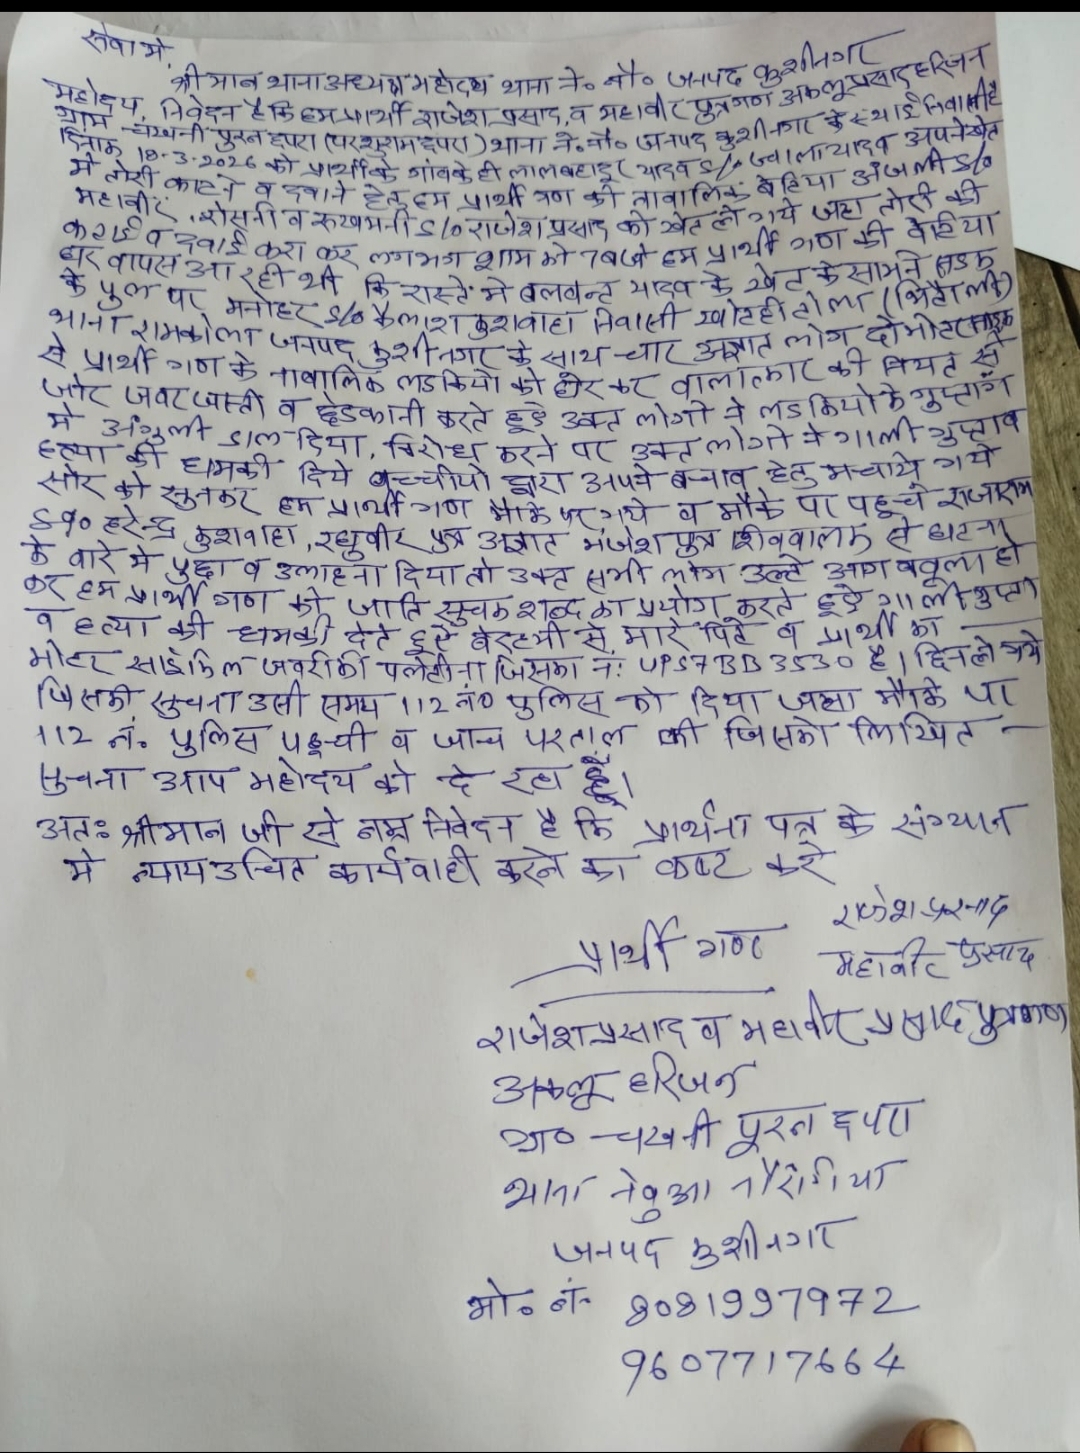 सेवा मे,
श्री मान थाना अध्यक्ष महोदय थाना ने० नौ० जनपद कुशीनगर
महोदय, निवेदन है कि हम प्रार्थी राजेश प्रसाद, व महावीर पुत्रगण अकलू प्रसाद हरिजन
ग्राम चखनी पुरन छपरा (परशुराम छपरा) थाना ने० नौ० जनपद कुशीनगर के स्थाई निवासी है
दिनांक 18-3-2026 को प्रार्थी के गांव के ही लालबहादूर यादव S/o ज्वाला यादव अपने खेत
मे तोरी काटने व दवाने हेतु हम प्रार्थी गण की नावालिक बेटिया अंजली S/o
महावीर, रोसनी व रुखमनी S/o राजेश प्रसाद को खेत ले गये जहा तोरी की
कटाई व दवाई करा कर लगभग शाम को 7 बजे हम प्रार्थी गण की बेटिया
घर वापस आ रही थी कि रास्ते मे बलवन्त यादव के खेत के सामने सडक
के पुल पर मनोहर S/o कैलाश कुशवाहा निवासी खोटही टोला (सिठौली)
थाना रामकोला जनपद कुशीनगर के साथ चार अज्ञात लोग दो मोटर साइकिल
से प्रार्थी गण के नावालिक लडकियो को घेर कर वालात्कार की नियत से
जोर जवरजस्ती व छेडकानी करते हुऐ उक्त लोगो ने लडकियो के गुप्तांग
मे अंगुली डाल दिया, विरोध करने पर उक्त लोगो ने गाली गुप्ता व
हत्या की धामकी दिये बच्चीयो द्वारा अपने बचाव हेतु मचाये गये
सोर को सुनकर हम प्रार्थी गण मौके पर गये व मौके पर पहूचे राजाराम
S/o हरेन्द्र कुशवाहा, रघुवीर पुत्र अज्ञात मंजेश पुत्र शिववालक से घटना
के वारे मे पुछा व उलाहना दिया तो उक्त सभी लोग उल्टे आग बबूला हो
कर हम प्रार्थी गण को जाति सूचक शब्द का प्रयोग करते हुऐ गाली गुप्ता
व हत्या की धामकी देते हुऐ बेरहमी से मारे पिटे व प्रार्थी का
मोटर साइकिल जवरीकी पलेटीना जिसका नं: UP57BB3530 है। छिन ले गये
जिसकी सुचना उसी समय 112 नं० पुलिस को दिया जहा मौके पर
112 नं. पुलिस पहूची व जान्च परताल की जिसको लिखित
सुचना आप महोदय को दे रहा हूँ।
अतः श्री मान जी से नम्र निवेदन है कि प्रार्थना पत्र के संग्यान
मे न्याय उचित कार्यवाही करने का कष्ट करे
राजेश प्रसाद
प्रार्थी गण महावीर प्रसाद
राजेश प्रसाद व महावीर प्रसाद पुत्रगण
अकलू हरिजन
ग्रा० चखनी पूरन छपरा
थाना नेवुआ नौरंगिया
जनपद कुशीनगर
मो० नं. 8081997972
9607717664